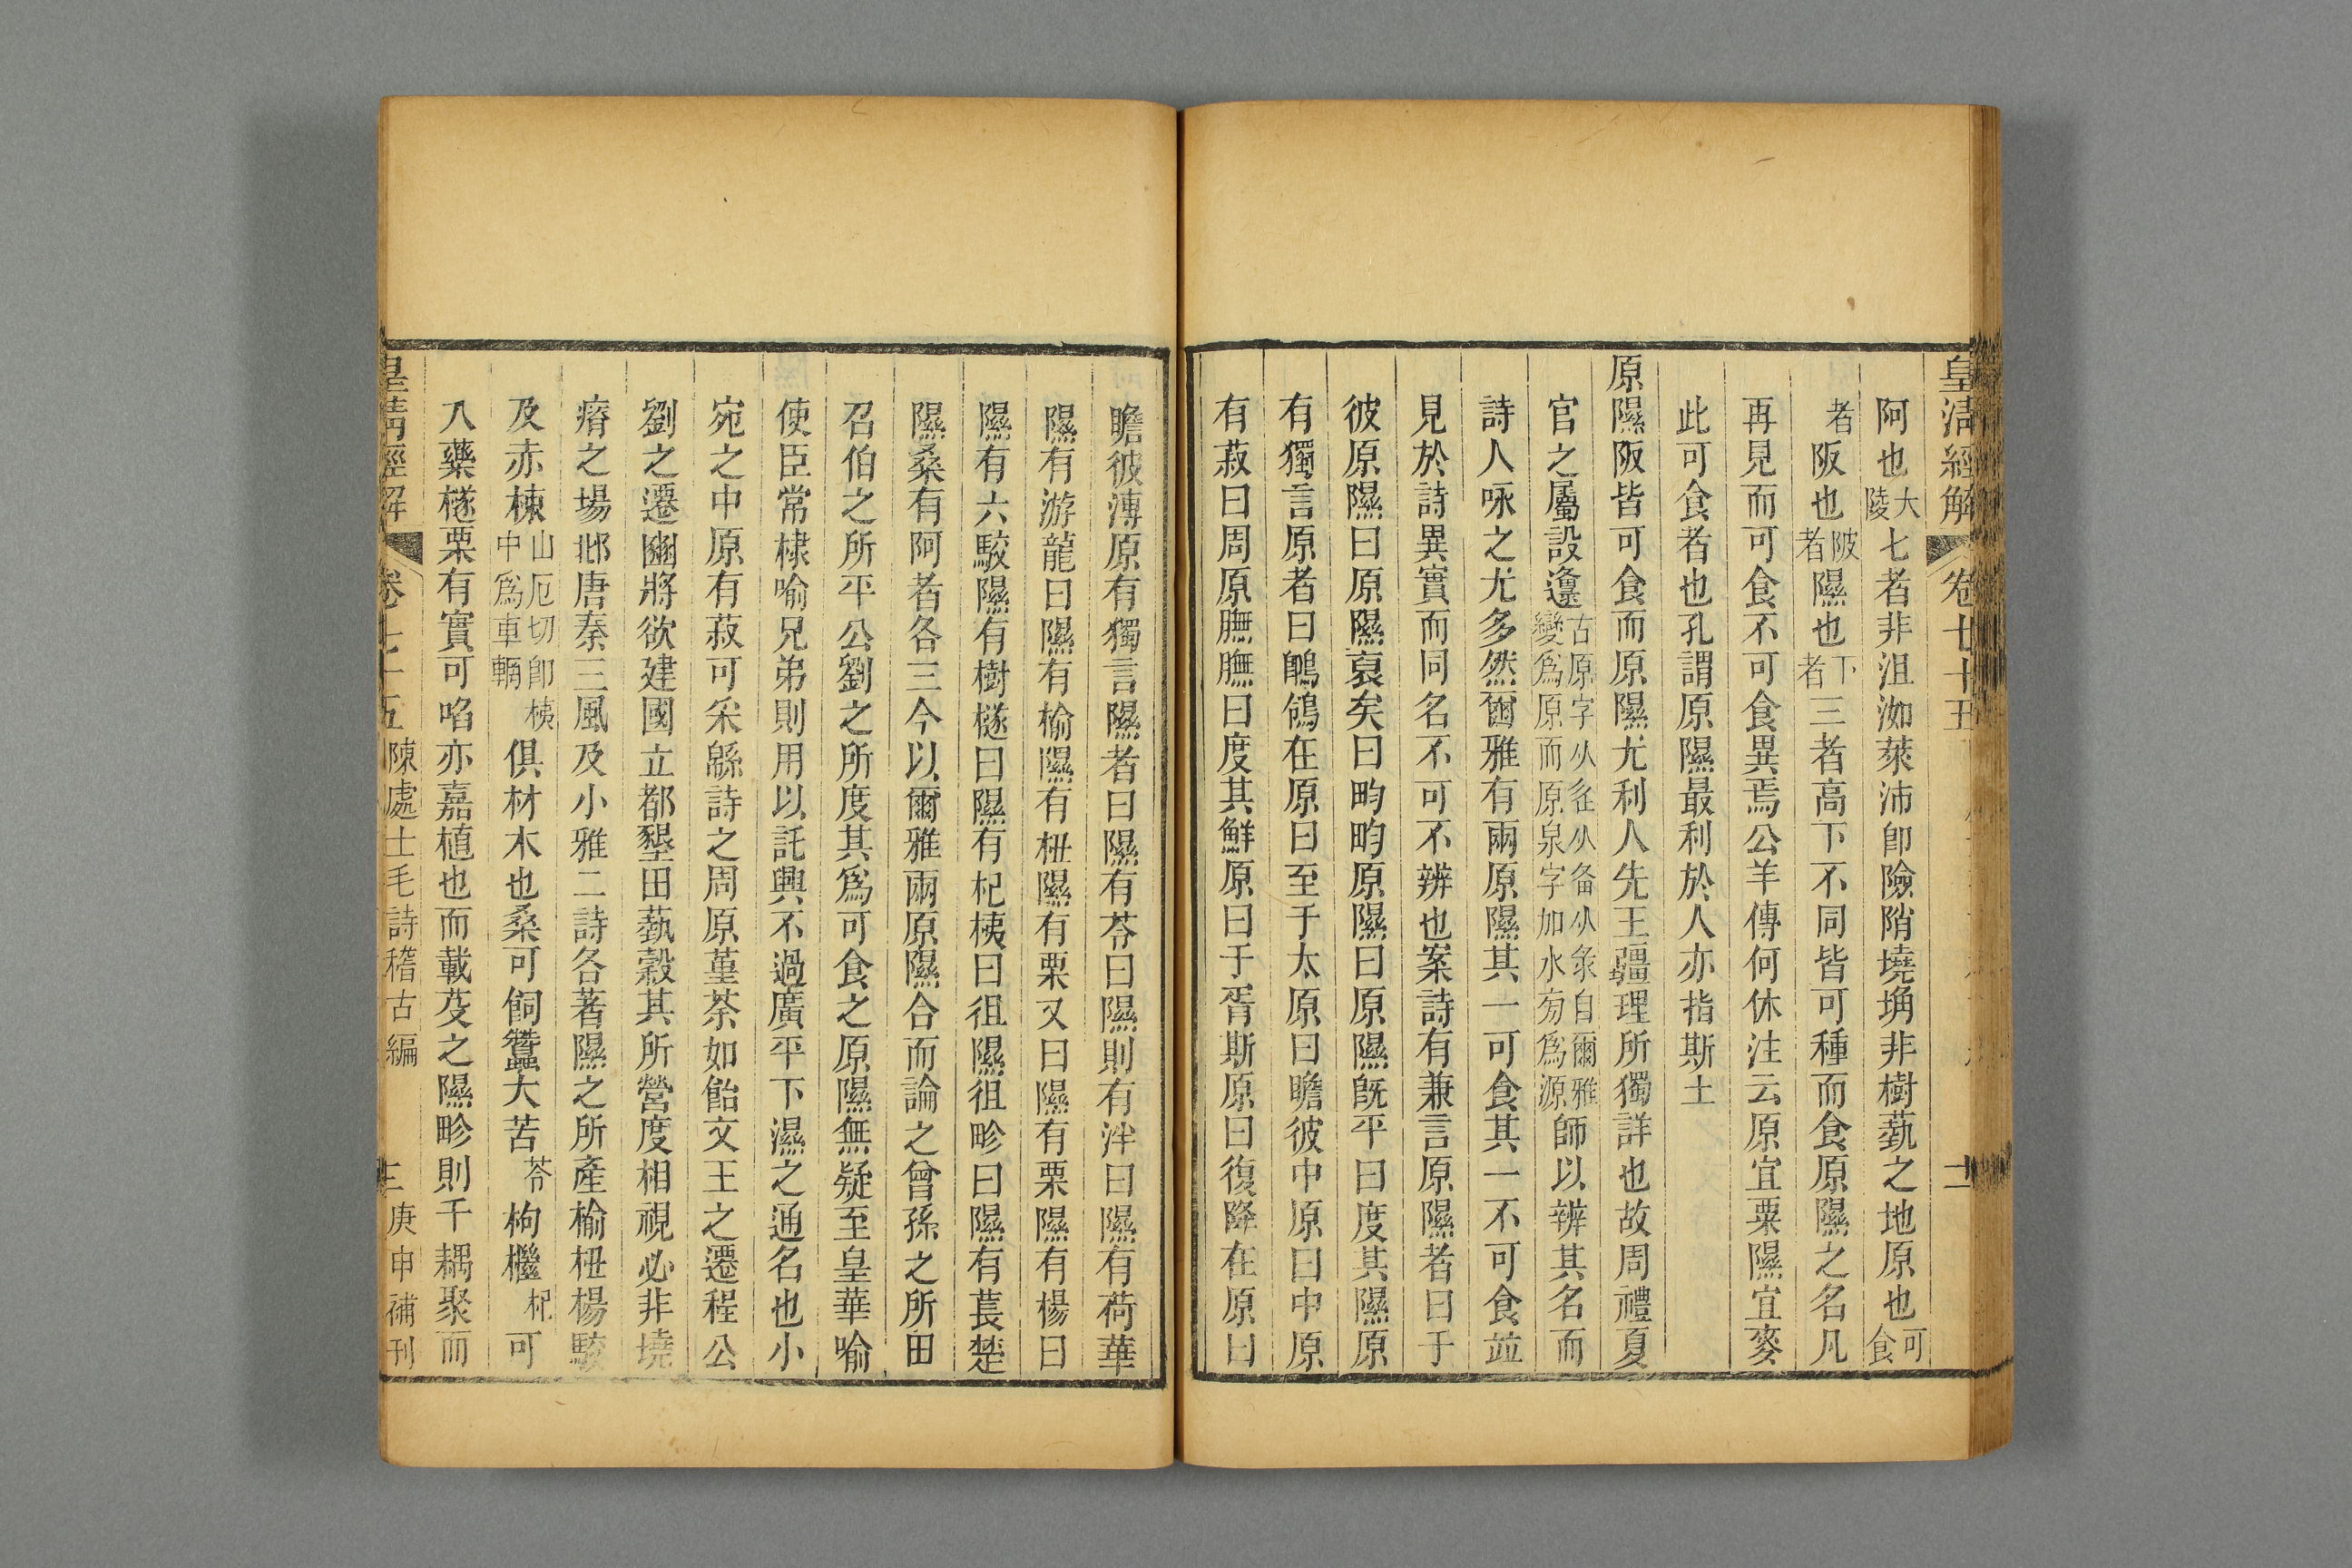 皇清經解 卷七十五 二
阿也大陵七者非沮洳萊沛卽險陗墝埆非樹蓺之地原也可食
者阪也陂者隰也下者三者高下不同皆可種而食原隰之名凡
再見而可食不可食異焉公羊傳何休注云原宜粟隰宜麥
此可食者也孔謂原隰最利於人亦指斯土
原隰阪皆可食而原隰尤利人先王疆理所獨詳也故周禮夏
官之屬設邍古原字从辵从备从彖自爾雅變爲原而原泉字加水旁爲源師以辨其名而
詩人咏之尤多然爾雅有兩原隰其一可食其一不可食竝
見於詩異實而同名不可不辨也案詩有兼言原隰者曰于
彼原隰曰原隰裒矣曰畇畇原隰曰原隰旣平曰度其隰原
有獨言原者曰鶺鴒在原曰至于太原曰瞻彼中原曰中原
有菽曰周原膴膴曰度其鮮原曰于胥斯原曰復降在原曰
瞻彼溥原有獨言隰者曰隰有苓曰隰則有泮曰隰有荷華
隰有游龍曰隰有榆隰有杻隰有栗又曰隰有栗隰有楊曰
隰有六駮隰有樹檖曰隰有杞桋曰徂隰徂畛曰隰有萇楚
隰桑有阿者各三今以爾雅兩原隰合而論之曾孫之所田
召伯之所平公劉之所度其爲可食之原隰無疑至皇華喻
使臣常棣喻兄弟則用以託興不過廣平下濕之通名也小
宛之中原有菽可采緜詩之周原堇荼如飴文王之遷程公
劉之遷豳將欲建國立都墾田蓺穀其所營度相視必非墝
瘠之場邶唐秦三風及小雅二詩各著隰之所產榆杻楊駮
及赤楝山厄切卽桋中爲車輞俱材木也桑可飼蠶大苦苓枸檵杞可
入藥檖栗有實可啗亦嘉植也而載芟之隰畛則千耦聚而
皇清經解 卷七十五 陳處士毛詩稽古編 三 庚申補刊